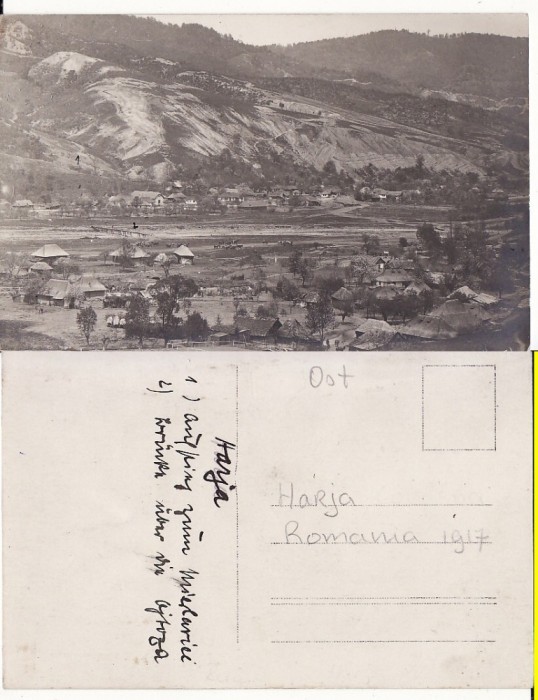 Harja
1) Aufstieg zum
2) Brücke über die Ojtoza
Oot
Harja
Romania 1917